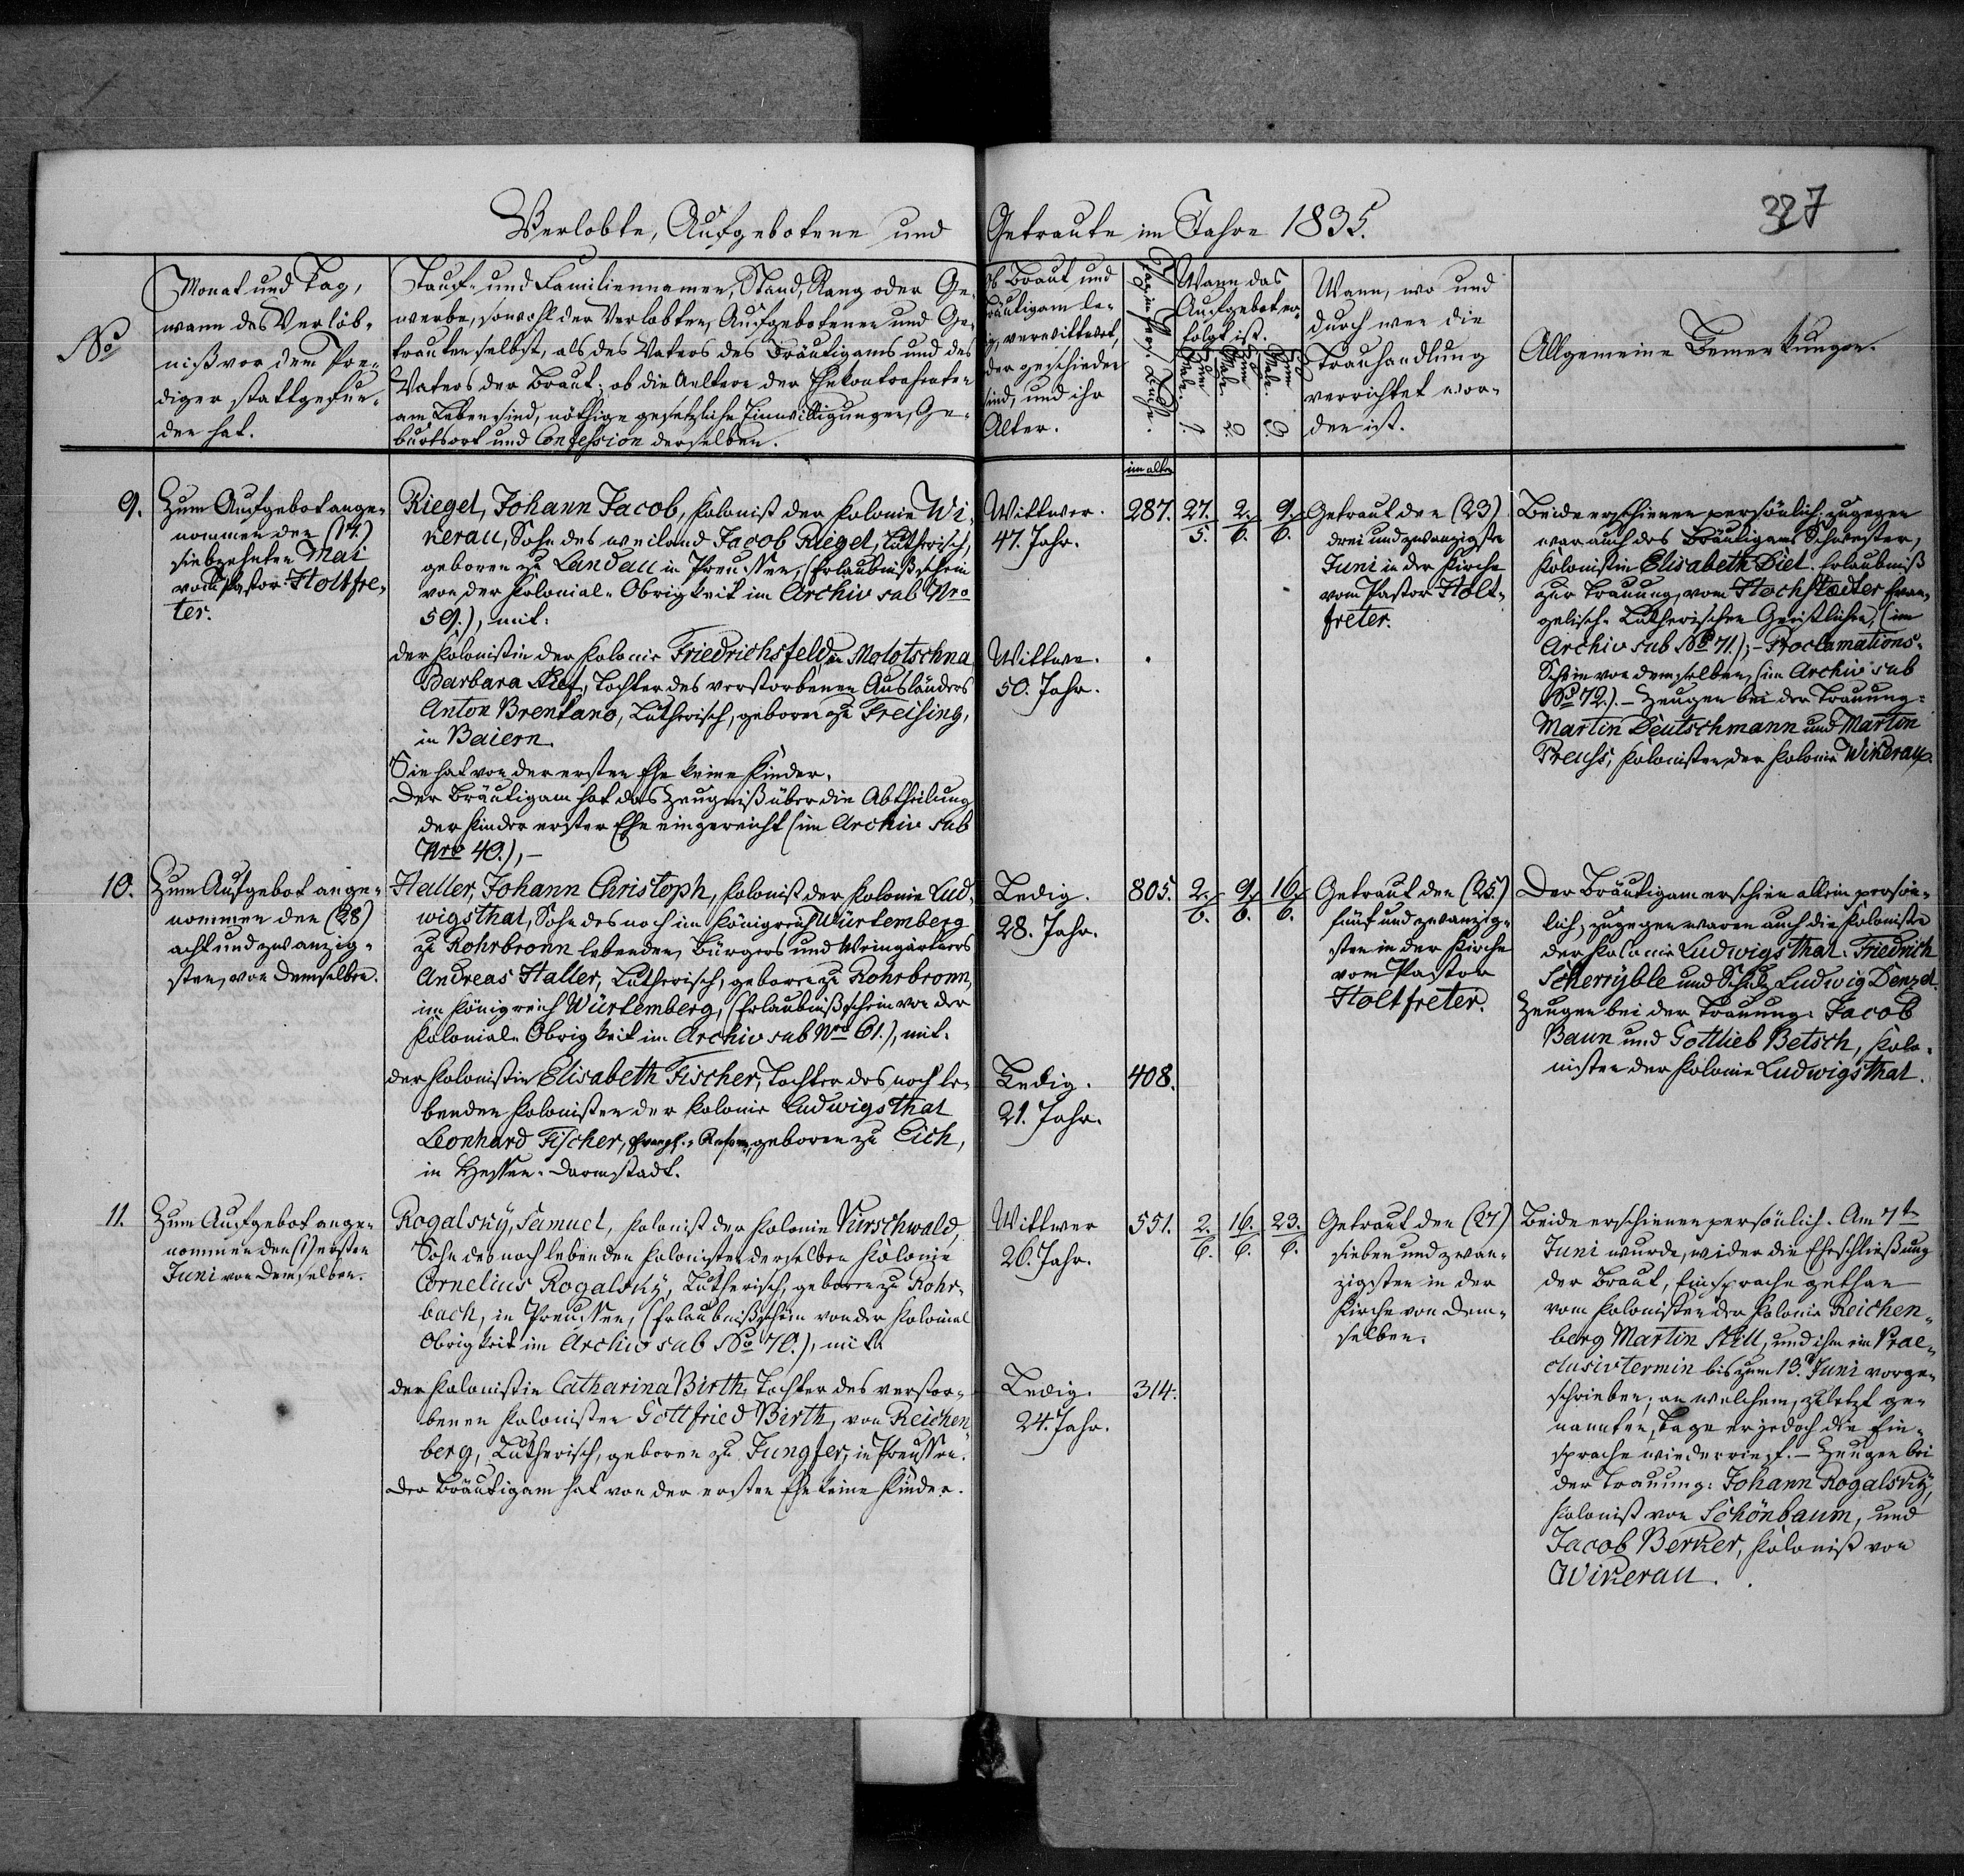 327
Verlobte, Aufgebotene und Getraute im Jahre 1835.
No
Monat und Tag,
wann das Verlöb-
niß vor dem Pre-
diger stattgefun-
den hat.
Tauf- und Familiennamen, Stand, Rang oder Ge-
werbe, sowohl der Verlobten, Aufgebotenen und Ge-
trauten selbst, als des Vaters des Bräutigams und des
Vaters der Braut; ob die Aeltern der Ehekontrahenten
am Leben sind, nöthige gesetzliche Einwilligungen, Ge-
burtsort und Confession derselben.
Ob Braut und
Bräutigam le-
dig, verwittwet,
oder geschieden
sind, und ihr
Alter.
Pag. im Pers. Buche.
Wann das
Aufgebot er-
folgt ist.
Zum 1. Male.
Zum 2. Male.
Zum 3. Male.
Wann, wo und
durch wen die
Trauhandlung
verrichtet wor-
den ist.
Allgemeine Bemerkungen.
9.
Zum Aufgebot ange-
nommen den (17.)
siebzehnten Mai
vom Pastor Holtfre-
ter.
Riegel, Johann Jacob, Kolonist der Kolonie Wi-
kerau, Sohn des weiland Jacob Riegel, Lutherisch,
geboren zu Landau in Preussen, (Erlaubnißschein
von der Kolonial-Obrigkeit im Archiv sub Nro
59.), mit:
der Kolonistin der Kolonie Friedrichsfeld, in Molotschna
Barbara Diet, Tochter des verstorbenen Ausländers
Anton Brentano, Lutherisch, geboren zu Freising,
in Baiern.
Sie hat von der ersten Ehe keine Kinder.
Der Bräutigam hat das Zeugniß über die Abtheilung
der Kinder erster Ehe eingereicht (im Archiv sub
Nro 40.),-
Wittwer.
47. Jahr.
Wittwe.
50. Jahr.
im alten
287.
27./5.
2./6.
9./6.
Getraut den (23)
drei und zwanzigsten
Juni in der Kirche
vom Pastor Holt-
freter.
Beide erschienen persönlich; zugegen
war auch des Bräutigams Schwester,
Kolonistin Elisabeth Diet. Erlaubniß
zur Trauung, vom Hochstädter Evan-
gelisch-Lutherischen Geistlichen, (im
Archiv sub No 71.);- Proclamations-
Schein von demselben, (im Archiv sub
No 72.).- Zeugen bei der Trauung:
Martin Deutschmann und Martin
Preuss, Kolonisten der Kolonie Wikerau.
10.
Zum Aufgebot ange-
nommen den (28)
acht und zwanzig-
sten, von demselben.
Haller, Johann Christoph, Kolonist der Kolonie Lud-
wigsthal, Sohn des noch im Königreich Würtemberg
zu Rohrbronn lebenden, Bürgers und Weingärtners
Andreas Haller, Lutherisch, geboren zu Rohrbronn,
im Königreich Würtemberg, (Erlaubnißschein von der
Kolonial-Obrigkeit im Archiv sub Nro 61.), mit.
der Kolonistin Elisabeth Fischer, Tochter des noch le-
benden Kolonisten der Kolonie Ludwigsthal
Leonhard Fischer, Evangl.-Reform., geboren zu Eich,
in Hessen-Darmstadt.
Ledig.
28. Jahr.
Ledig.
21. Jahr.
805.
408.
2./6.
9./6.
16./6.
Getraut den (25.)
fünf und zwanzig-
sten in der Kirche
vom Pastor
Holtfreter.
Der Bräutigam erschien allein persön-
lich; zugegen waren auch die Kolonisten
der Kolonie Ludwigsthal: Friedrich
Scherryble und Schulz Ludwig Denzel.
Zeugen bei der Trauung: Jacob
Baun und Gottlieb Betsch, Kolo-
nisten der Kolonie Ludwigsthal.
11.
Zum Aufgebot ange-
nommen den (1) ersten
Juni von demselben.
Rogalsky, Samuel, Kolonist der Kolonie Tiirschwald,
Sohn des noch lebenden Kolonisten derselben Kolonie
Cornelius Rogalsky, Lutherisch, geboren zu Rohr-
bach, in Preussen, (Erlaubnißschein von der Kolonial
Obrigkeit im Archiv sub No 70.), mit
der Kolonistin Catharina Birth, Tochter des verstor-
benen Kolonisten Gottfried Birth, von Reichen-
berg, Lutherisch, geboren zu Jungfer, in Preussen.
Der Bräutigam hat von der ersten Ehe keine Kinder.
Wittwer
26. Jahr.
Ledig.
24. Jahr.
551.
314.
2./6.
16./6.
23./6.
Getraut den (27)
sieben und zwan-
zigsten in der
Kirche von dem-
selben.
Beide erschienen persönlich. Am 7t
Juni wurde, wider die Eheschließung
der Braut, Einsprache gethan
vom Kolonisten der Kolonie Reichen-
berg Martin Hill, und ihm ein Prae-
clusivtermin bis zum 13. Juni vorge-
schrieben; an welchem, zuletzt ge-
nannten, Tage er jedoch die Ein-
sprache wiederrief.- Zeugen bei
der Trauung: Johann Rogalsky,
Kolonist von Schönbaum, und
Jacob Berker, Kolonist von
Wikerau.